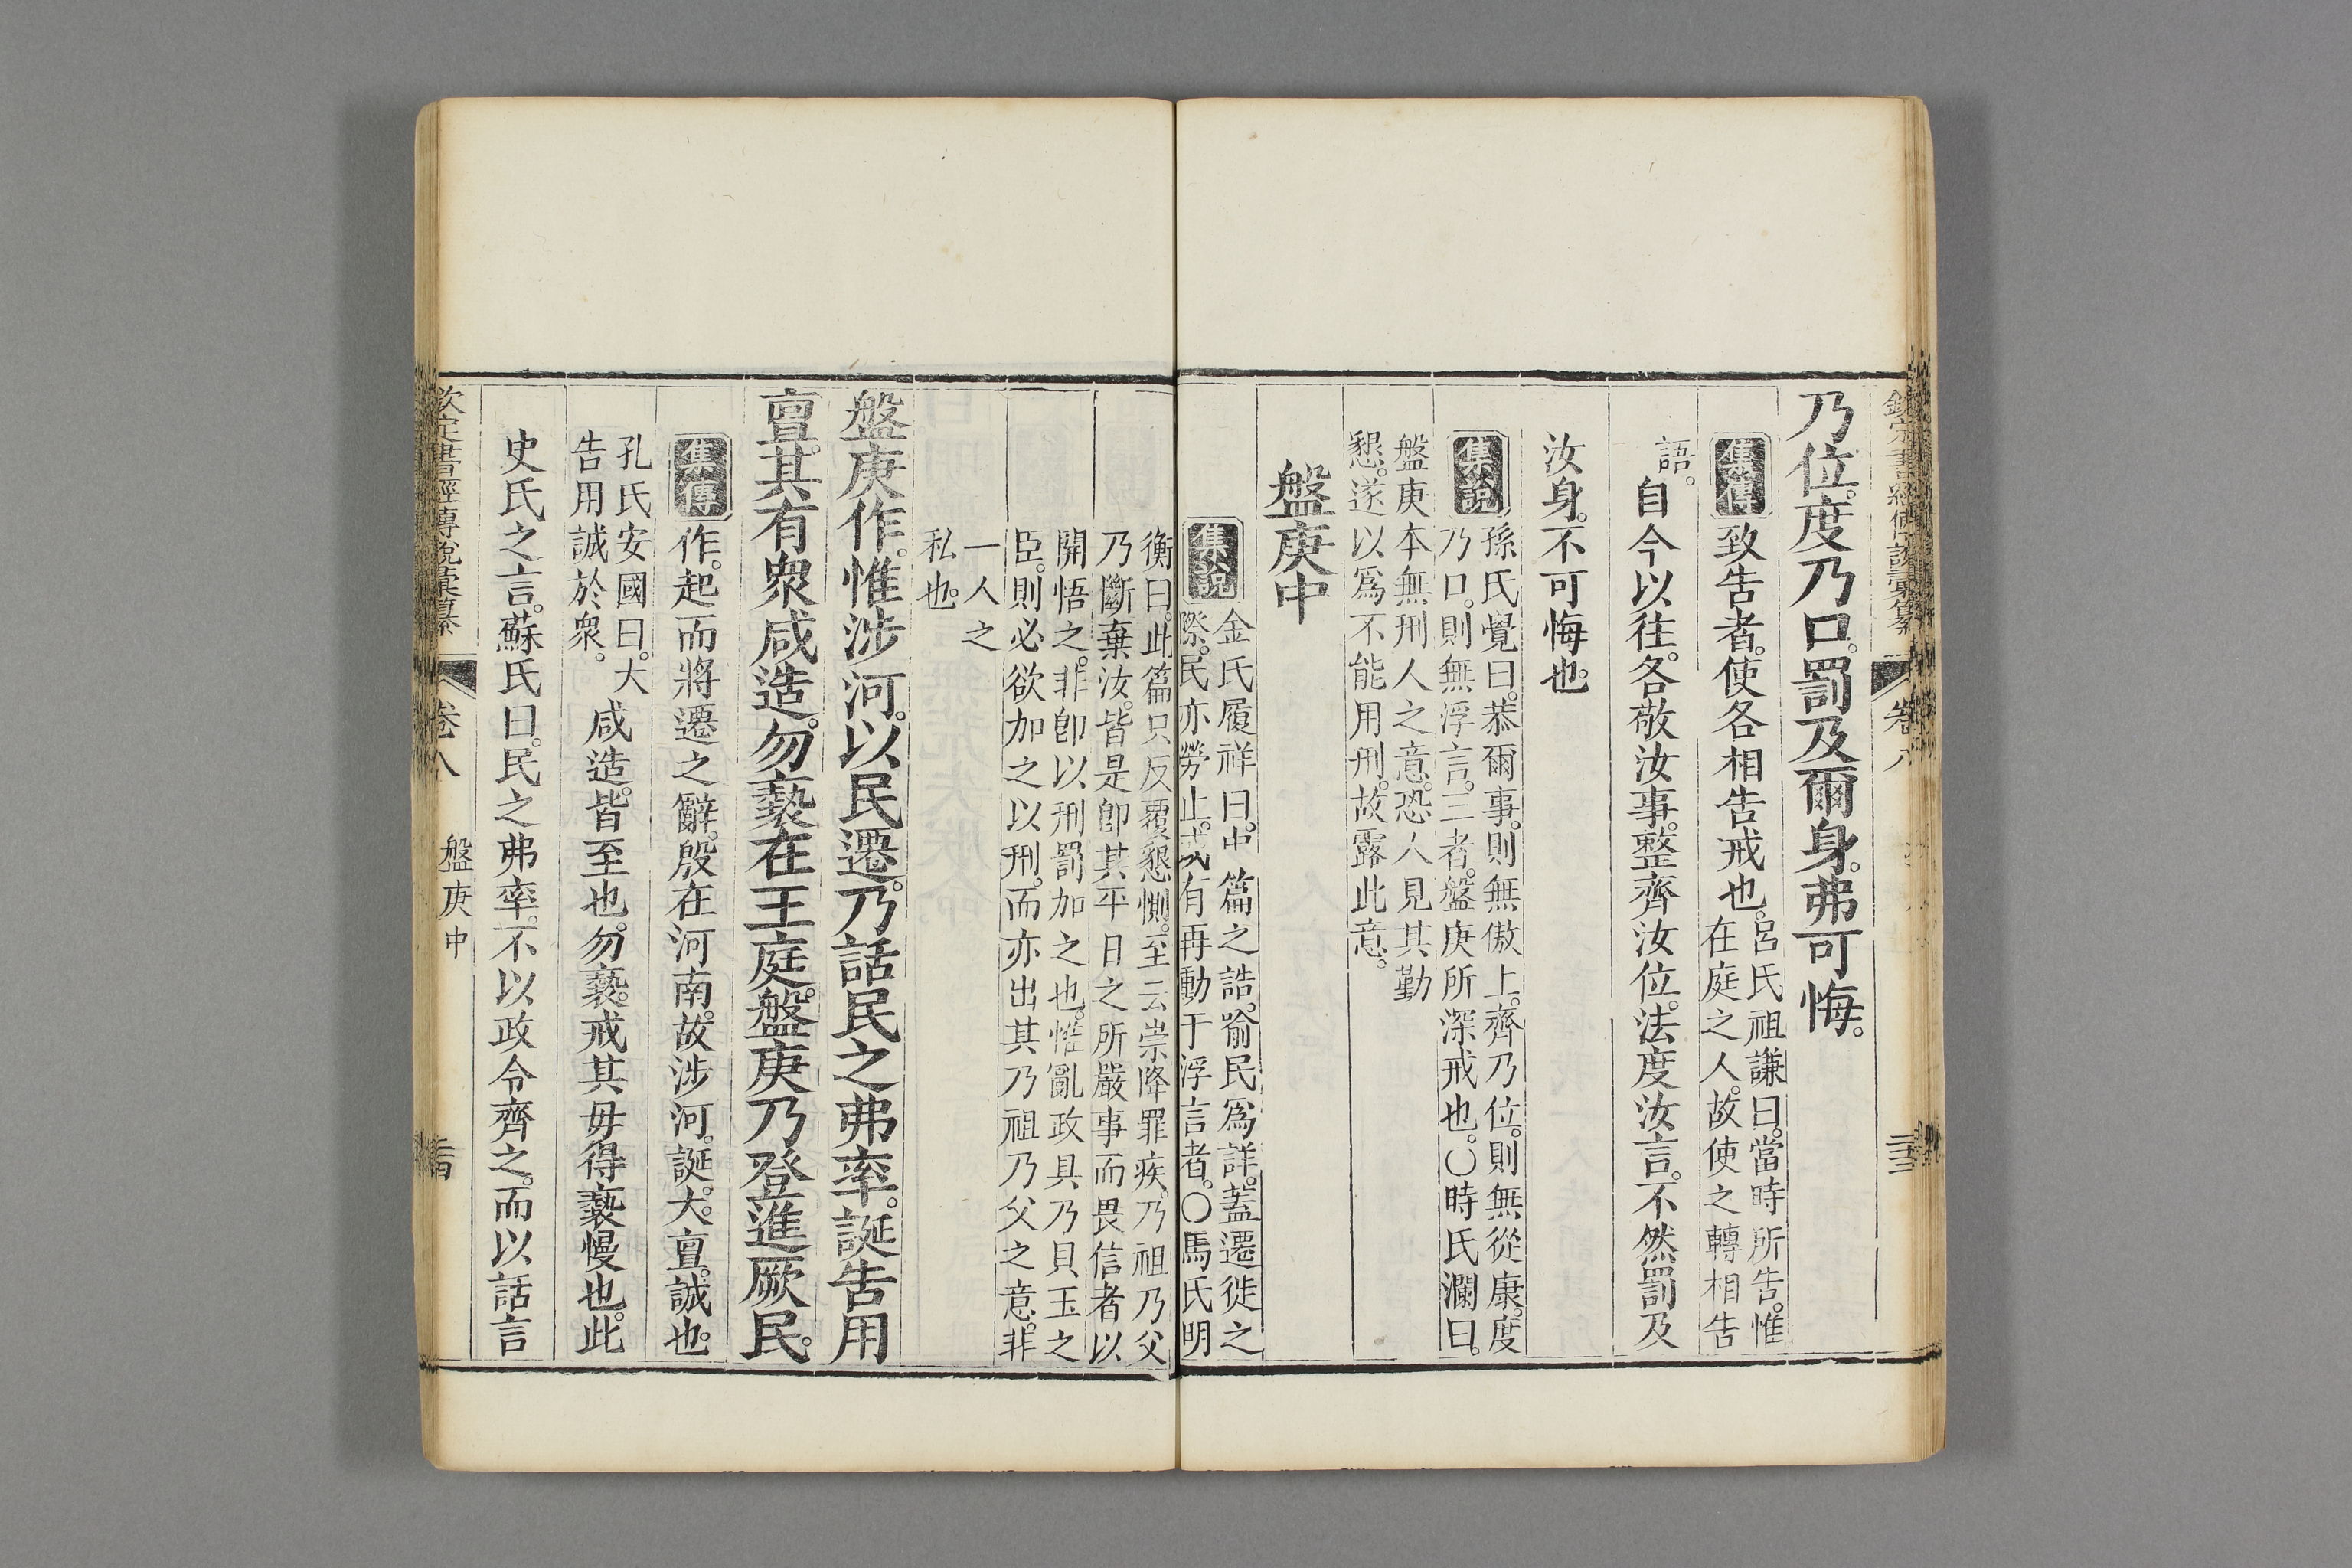 欽定書經傳說彙纂 卷八
乃位。度乃口。罰及爾身。弗可悔。
集傳 致告者。使各相告戒也。呂氏祖謙曰。當時所告。惟
在庭之人。故使之轉相告
語。自今以往。各敬汝事。整齊汝位。法度汝言。不然罰及
汝身。不可悔也。
集說 孫氏覺曰。恭爾事。則無傲上。齊乃位。則無從康。度
乃口。則無浮言。三者。盤庚所深戒也。〇時氏瀾曰。
盤庚本無刑人之意。恐人見其勤
懇。遂以爲不能用刑。故露此意。
盤庚中
集說 金氏履祥曰。中篇之誥。喻民爲詳。蓋遷徙之
際。民亦勞止。或有再動于浮言者。〇馬氏明
衡曰。此篇只反覆懇惻。至云崇降罪疾。乃祖乃父
乃斷棄汝。皆是卽其平日之所嚴事而畏信者以
開悟之。非卽以刑罰加之也。惟亂政具乃貝玉之
臣。則必欲加之以刑。而亦出其乃祖乃父之意。非
一人之
私也。
盤庚作。惟涉河。以民遷。乃話民之弗率。誕告用
亶。其有衆咸造。勿褻在王庭。盤庚乃登進厥民。
集傳 作。起而將遷之辭。殷在河南。故涉河。誕。大。亶。誠也。
孔氏安國曰。大
告用誠於衆。咸造。皆至也。勿褻。戒其毋得褻慢也。此
史氏之言。蘇氏曰。民之弗率。不以政令齊之。而以話言
欽定書經傳說彙纂 卷八 盤庚中 二十四